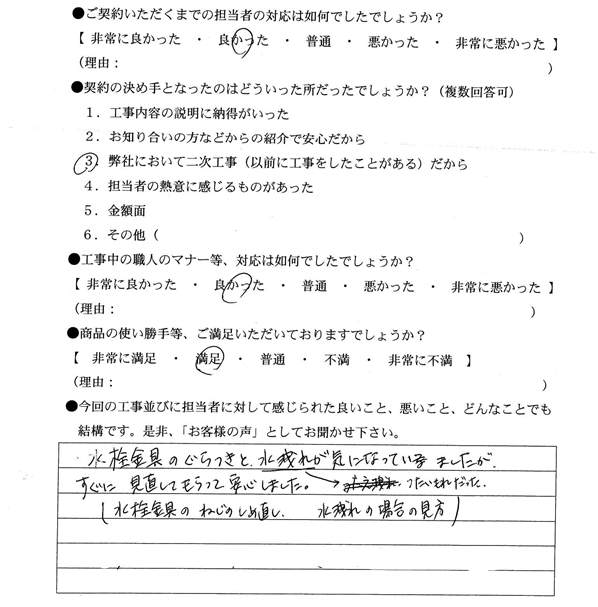 ●ご契約いただくまでの担当者の対応は如何でしたでしょうか？
【 非常に良かった ・ 良かった ・ 普通 ・ 悪かった ・ 非常に悪かった 】
（理由： ）
●契約の決め手となったのはどういった所だったでしょうか？（複数回答可）
１．工事内容の説明に納得がいった
２．お知り合いの方などからの紹介で安心だから
３．弊社において二次工事（以前に工事をしたことがある）だから
４．担当者の熱意に感じるものがあった
５．金額面
６．その他（ ）
●工事中の職人のマナー等、対応は如何でしたでしょうか？
【 非常に良かった ・ 良かった ・ 普通 ・ 悪かった ・ 非常に悪かった 】
（理由： ）
●商品の使い勝手等、ご満足いただいておりますでしょうか？
【 非常に満足 ・ 満足 ・ 普通 ・ 不満 ・ 非常に不満 】
（理由： ）
●今回の工事並びに担当者に対して感じられた良いこと、悪いこと、どんなことでも
結構です。是非、「お客様の声」としてお聞かせ下さい。
水栓金具のぐらつきと、水残れが気になっていましたが、
すぐに見直してもらって安心しました。 → つたいもれだった。
（水栓金具のねじのしめ直し、 水残れの場合の見方）